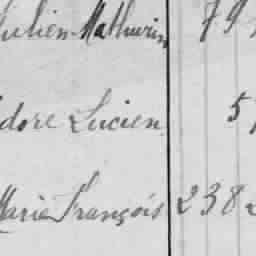 Julien Mathurin 79
dore Lucien 5
Marie François 2382